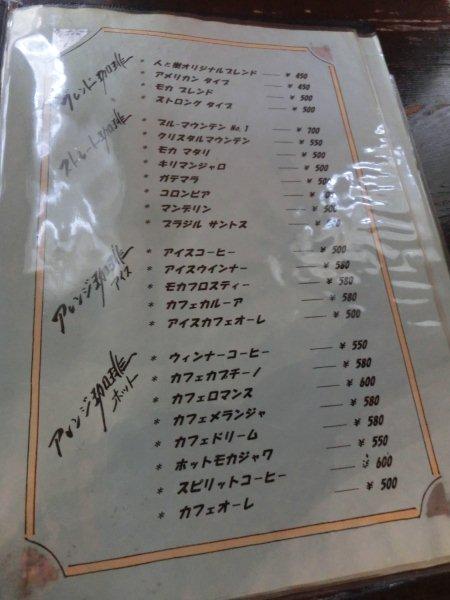 ブレンド珈琲
* 人と樹オリジナルブレンド ― ¥ 450
* アメリカン タイプ ― ¥ 450
* モカ ブレンド ― ¥ 500
* ストロング タイプ ― ¥ 500
ストレート珈琲
* ブル-マウンテン No.1 ― ¥ 700
* クリスタルマウンテン ― ¥ 550
* モカ マタリ ― ¥ 500
* キリマンジャロ ― ¥ 500
* ガテマラ ― ¥ 500
* コロンビア ― ¥
* マンデリン ― ¥ 500
* ブラジル サントス ― ¥
アレンジ珈琲 アイス
* アイスコーヒー ― ¥ 500
* アイスウインナー ― ¥ 580
* モカフロスティー ― ¥ 580
* カフェカルーア ― ¥ 580
* アイスカフェオーレ ― ¥ 500
アレンジ珈琲 ホット
* ウィンナーコーヒー ― ¥ 550
* カフェカプチーノ ― ¥ 580
* カフェロマンス ― ¥ 600
* カフェメランジャ ― ¥ 580
* カフェドリーム ― ¥ 580
* ホットモカジャワ ― ¥ 550
* スピリットコーヒー ― ¥ 600
* カフェオーレ ― ¥ 500